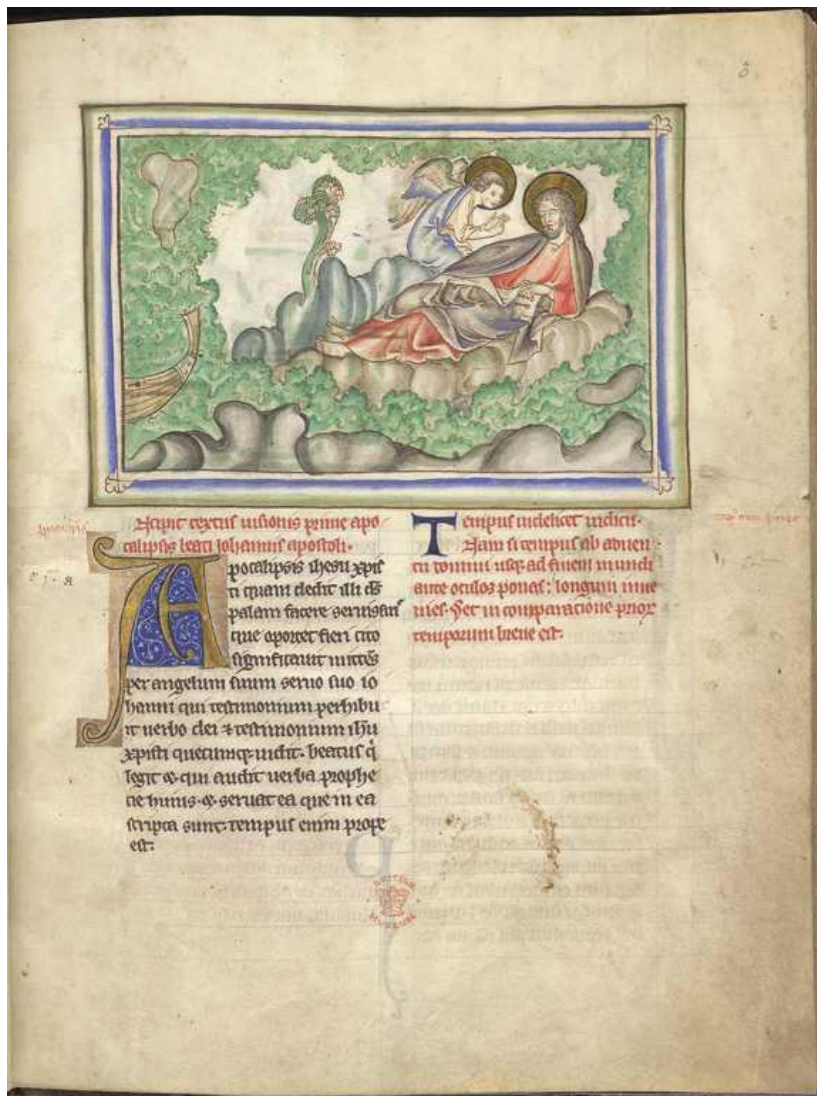 Incipit textus uisionis prime apo
calipsis beati Iohannis apostoli.
Apocalipsis ihesu xpis
ti quam dedit illi ds
palam facere seruis suis
que oportet fieri cito
significauit mittens
per angelum suum seruo suo io
hanni qui testimonium perhibu
it uerbo dei ⁊ testimonium ihu
xpisti quecumq; uidit. beatus q̇
legit & qui audit uerba prophe
tie huius. & seruat ea que in ea
scripta sunt: tempus enim prope
est:
Tempus uidelicet iudicii.
Nam si tempus ab aduen
tu domini usq; ad finem mundi
ante oculos ponas; longum inue
nies. Set in comparacione prior
temporum breue est.
BRITISH
MUSEUM